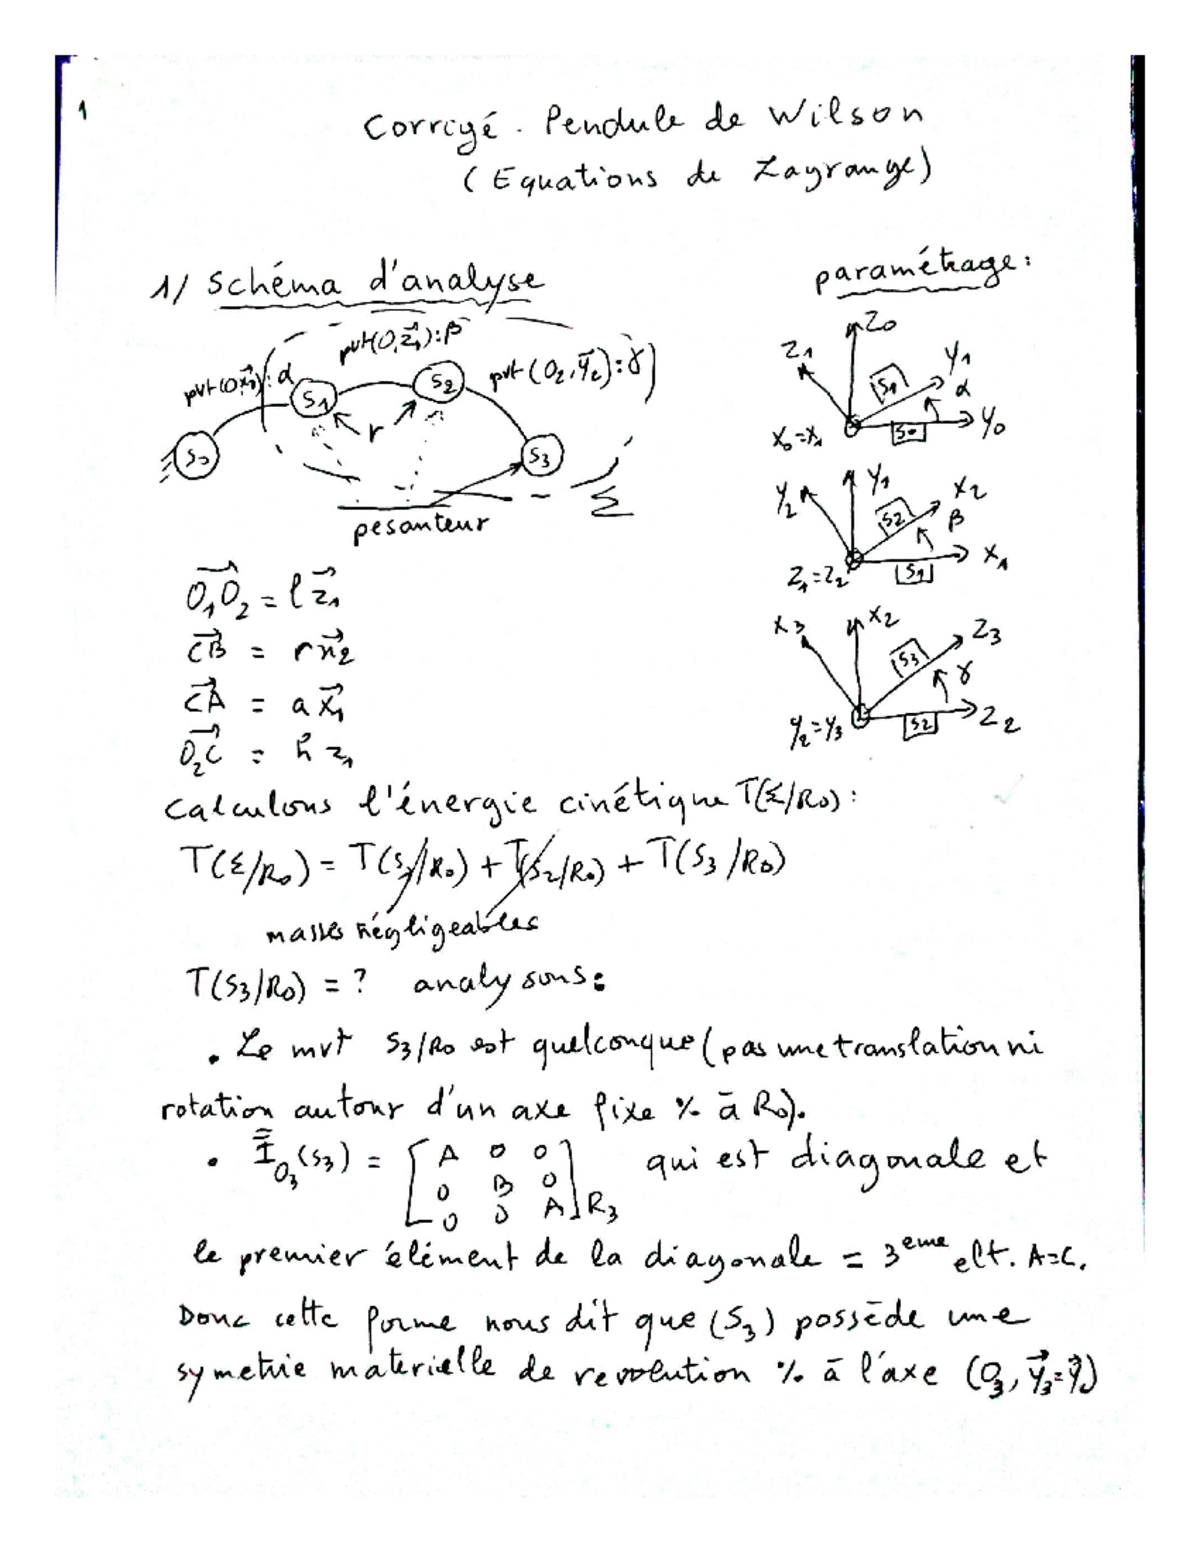 1
Corrigé . Pendule de Wilson
(Equations de Lagrange)
1/ Schéma d'analyse
paramétrage :
pvt(O,x⃗₁): α
pvt(O,z⃗₁): β
pvt (O₂,y⃗₂): γ
S₀
S₁
S₂
S₃
r
Σ
pesanteur
Z₀
Z₁
Y₁
S₁
α
X₀=X₁
S₀
Y₀
Y₂
Y₁
X₂
S₂
β
Z₁=Z₂
S₁
X₁
X₃
X₂
Z₃
S₃
γ
Y₂=Y₃
S₂
Z₂
O₁O₂ = l z⃗₁
CB = r x⃗₂
CA = a x⃗₁
O₂C = h z₁
Calculons l'énergie cinétique T(Σ/R₀) :
T(Σ/R₀) = T(S₁/R₀) + T(S₂/R₀) + T(S₃/R₀)
masses négligeables
T(S₃/R₀) = ? analysons :
. Le mvt S₃/R₀ est quelconque (pas une translation ni
rotation autour d'un axe fixe % à R₀).
• I O₃ (S₃) = [ A 0 0 qui est diagonale et
0 B 0
0 0 A ] R₃
le premier élément de la diagonale = 3eme elt. A=C.
Donc cette forme nous dit que (S₃) possède une
symetrie materielle de revolution % à l'axe (O₃, y⃗₃=y⃗₂)